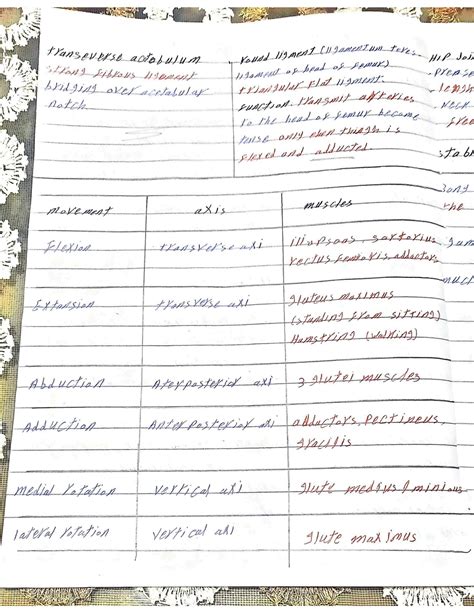 transeverse acetabulum
strong fibrous ligament
bridging over acetabular
notch
round ligment (ligamentum teres.
ligament of head of femur)
triangular flat ligment.
function transmit arteries
to the head of femur become
tense only when thigh is
flexed and adducted
HIP Join
stab
movement axis muscles
Flexion transverse axi iliopsoas, sartorius,
rectus femoris, adductors
Extension transverse axi gluteus maximus
(standing from sitting)
Hamstring (walking)
Abduction Aterposterior axi 3 glutei muscles
Adduction Anterposterior axi adductors, Pectineus,
gracilis
medial rotation vertical axi glute medius & minious
lateral rotation vertical axi glute maximus